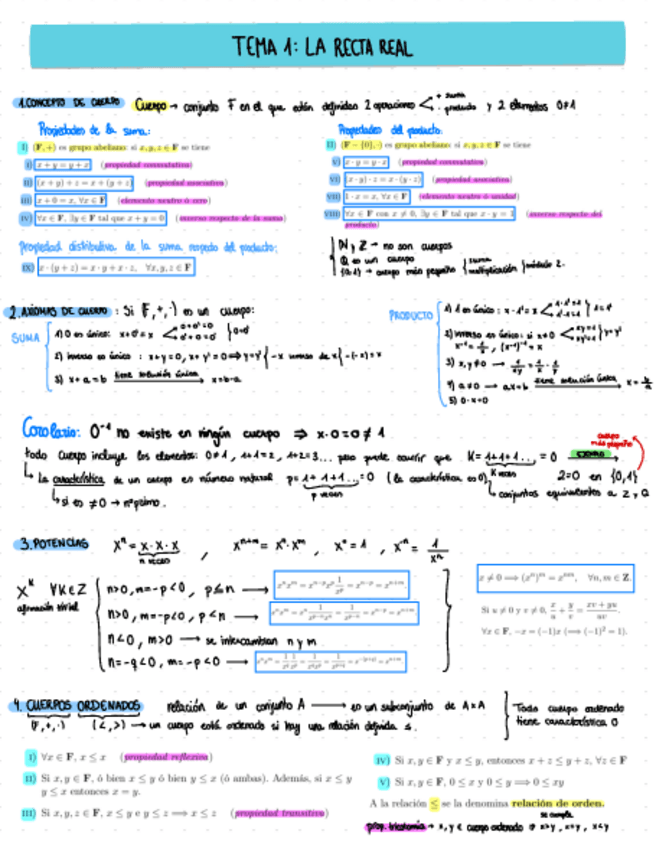 TEMA 1: LA RECTA REAL
1. CONCEPTO DE CUERPO Cuerpo → conjunto F en el que están definidas 2 operaciones < + suma · producto y 2 elementos 0≠1
Propiedades de la suma:
I) (F,+) es grupo abeliano: si x,y,z ∈ F se tiene
I) x + y = y + x (propiedad conmutativa)
II) (x + y) + z = x + (y + z) (propiedad asociativa)
III) x + 0 = x, ∀x ∈ F (elemento neutro ó cero)
IV) ∀x ∈ F, ∃y ∈ F tal que x + y = 0 (inverso respecto de la suma)
Propiedades del producto:
II) (F − {0},·) es grupo abeliano: si x,y,z ∈ F se tiene
V) x · y = y · x (propiedad conmutativa)
VI) (x · y) · z = x · (y · z) (propiedad asociativa)
VII) 1 · x = x, ∀x ∈ F (elemento neutro ó unidad)
VIII) ∀x ∈ F con x ≠ 0, ∃y ∈ F tal que x · y = 1 (inverso respecto del producto)
Propiedad distributiva de la suma respecto del producto:
IX) x · (y + z) = x · y + x · z, ∀x,y,z ∈ F
N y Z → no son cuerpos
Q es un cuerpo
{0,1} → cuerpo más pequeño { suma multiplicación } módulo 2.
2. AXIOMAS DE CUERPO: Si (F,+,·) es un cuerpo:
SUMA
1) 0 es único: x+0'=x < 0+0'=0 0'+0=0' } 0=0'
2) inverso es único: x+y=0, x+y'=0 ⇒ y=y' { -x inverso de x } -(-x)=x
3) x+a=b tiene solución única → x=b-a
PRODUCTO
1) 1 es único: x·1'=x < 1·1'=1 1'·1=1' } 1=1'
2) inverso es único: si x≠0 < xy=1 xy'=1 } y=y'
x⁻¹ = 1/x, (x⁻¹)⁻¹ = x
3) x,y≠0 → 1/xy = 1/x · 1/y
4) a≠0 → ax=b tiene solución única → x = b/a
5) 0·x=0
Corolario: 0⁻¹ no existe en ningún cuerpo ⇒ x·0=0≠1
todo cuerpo incluye los elementos: 0≠1, 1+1=2, 1+2=3... pero puede ocurrir que K=1+1+1...=0 K veces
cuerpo más pequeño
2=0 en {0,1}
↳ La característica de un cuerpo es número natural p=1+1+1...=0 (la característica es 0) p veces
↳ conjuntos equivalentes a Z y Q
↳ si es ≠0 → nº primo.
3. POTENCIAS xⁿ = x·x·x n veces, xⁿ⁺ᵐ = xⁿ·xᵐ, x⁰=1, x⁻ⁿ = 1/xⁿ
xᴷ ∀K∈Z
n>0, m=-p<0, p≤n →
n>0, m=-p<0, p<n →
n<0, m>0 → se intercambian n y m
n=-q<0, m=-p<0 →
x ≠ 0 ⟹ (xⁿ)ᵐ = xⁿᵐ, ∀n,m ∈ Z.
Si u ≠ 0 y v ≠ 0, x/u + y/v = (xv + yu)/uv.
∀x ∈ F, −x = (−1)x (⟹ (−1)² = 1).
4. CUERPOS ORDENADOS relación de un conjunto A → es un subconjunto de A×A
(F,+,·) (<,>) → un cuerpo está ordenado si hay una relación definida ≤.
Todo cuerpo ordenado tiene característica 0
I) ∀x ∈ F, x ≤ x (propiedad reflexiva)
II) Si x,y ∈ F, ó bien x ≤ y ó bien y ≤ x (ó ambas). Además, si x ≤ y
y ≤ x entonces x = y.
III) Si x,y,z ∈ F, x ≤ y e y ≤ z ⟹ x ≤ z (propiedad transitiva)
IV) Si x,y ∈ F y x ≤ y, entonces x + z ≤ y + z, ∀z ∈ F
V) Si x,y ∈ F, 0 ≤ x y 0 ≤ y ⟹ 0 ≤ xy
A la relación ≤ se la denomina relación de orden.
se cumple
prop. tricotomía → x,y ∈ cuerpo ordenado ⇒ x>y, x=y, x<y